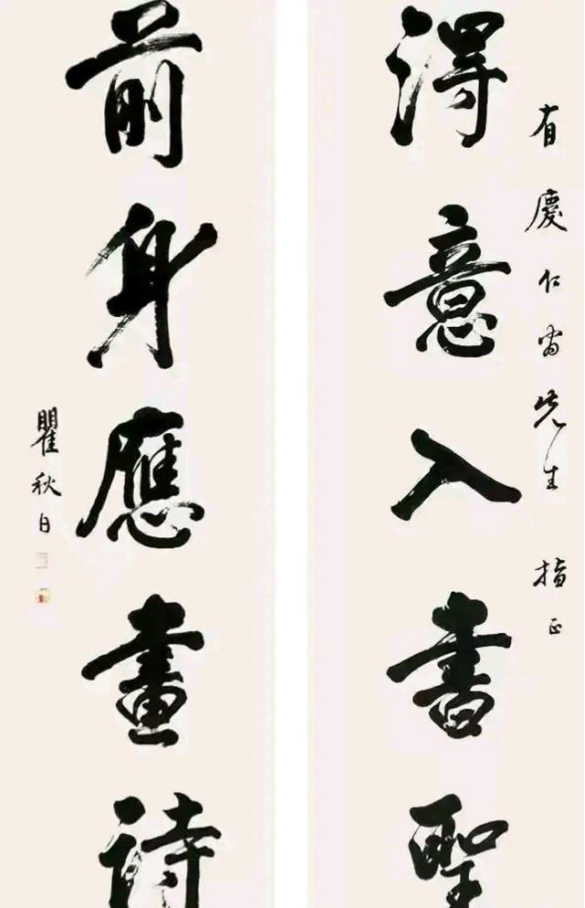 有慶仁甯先生 指正
得意入書聖
前身應畫詩
瞿秋白